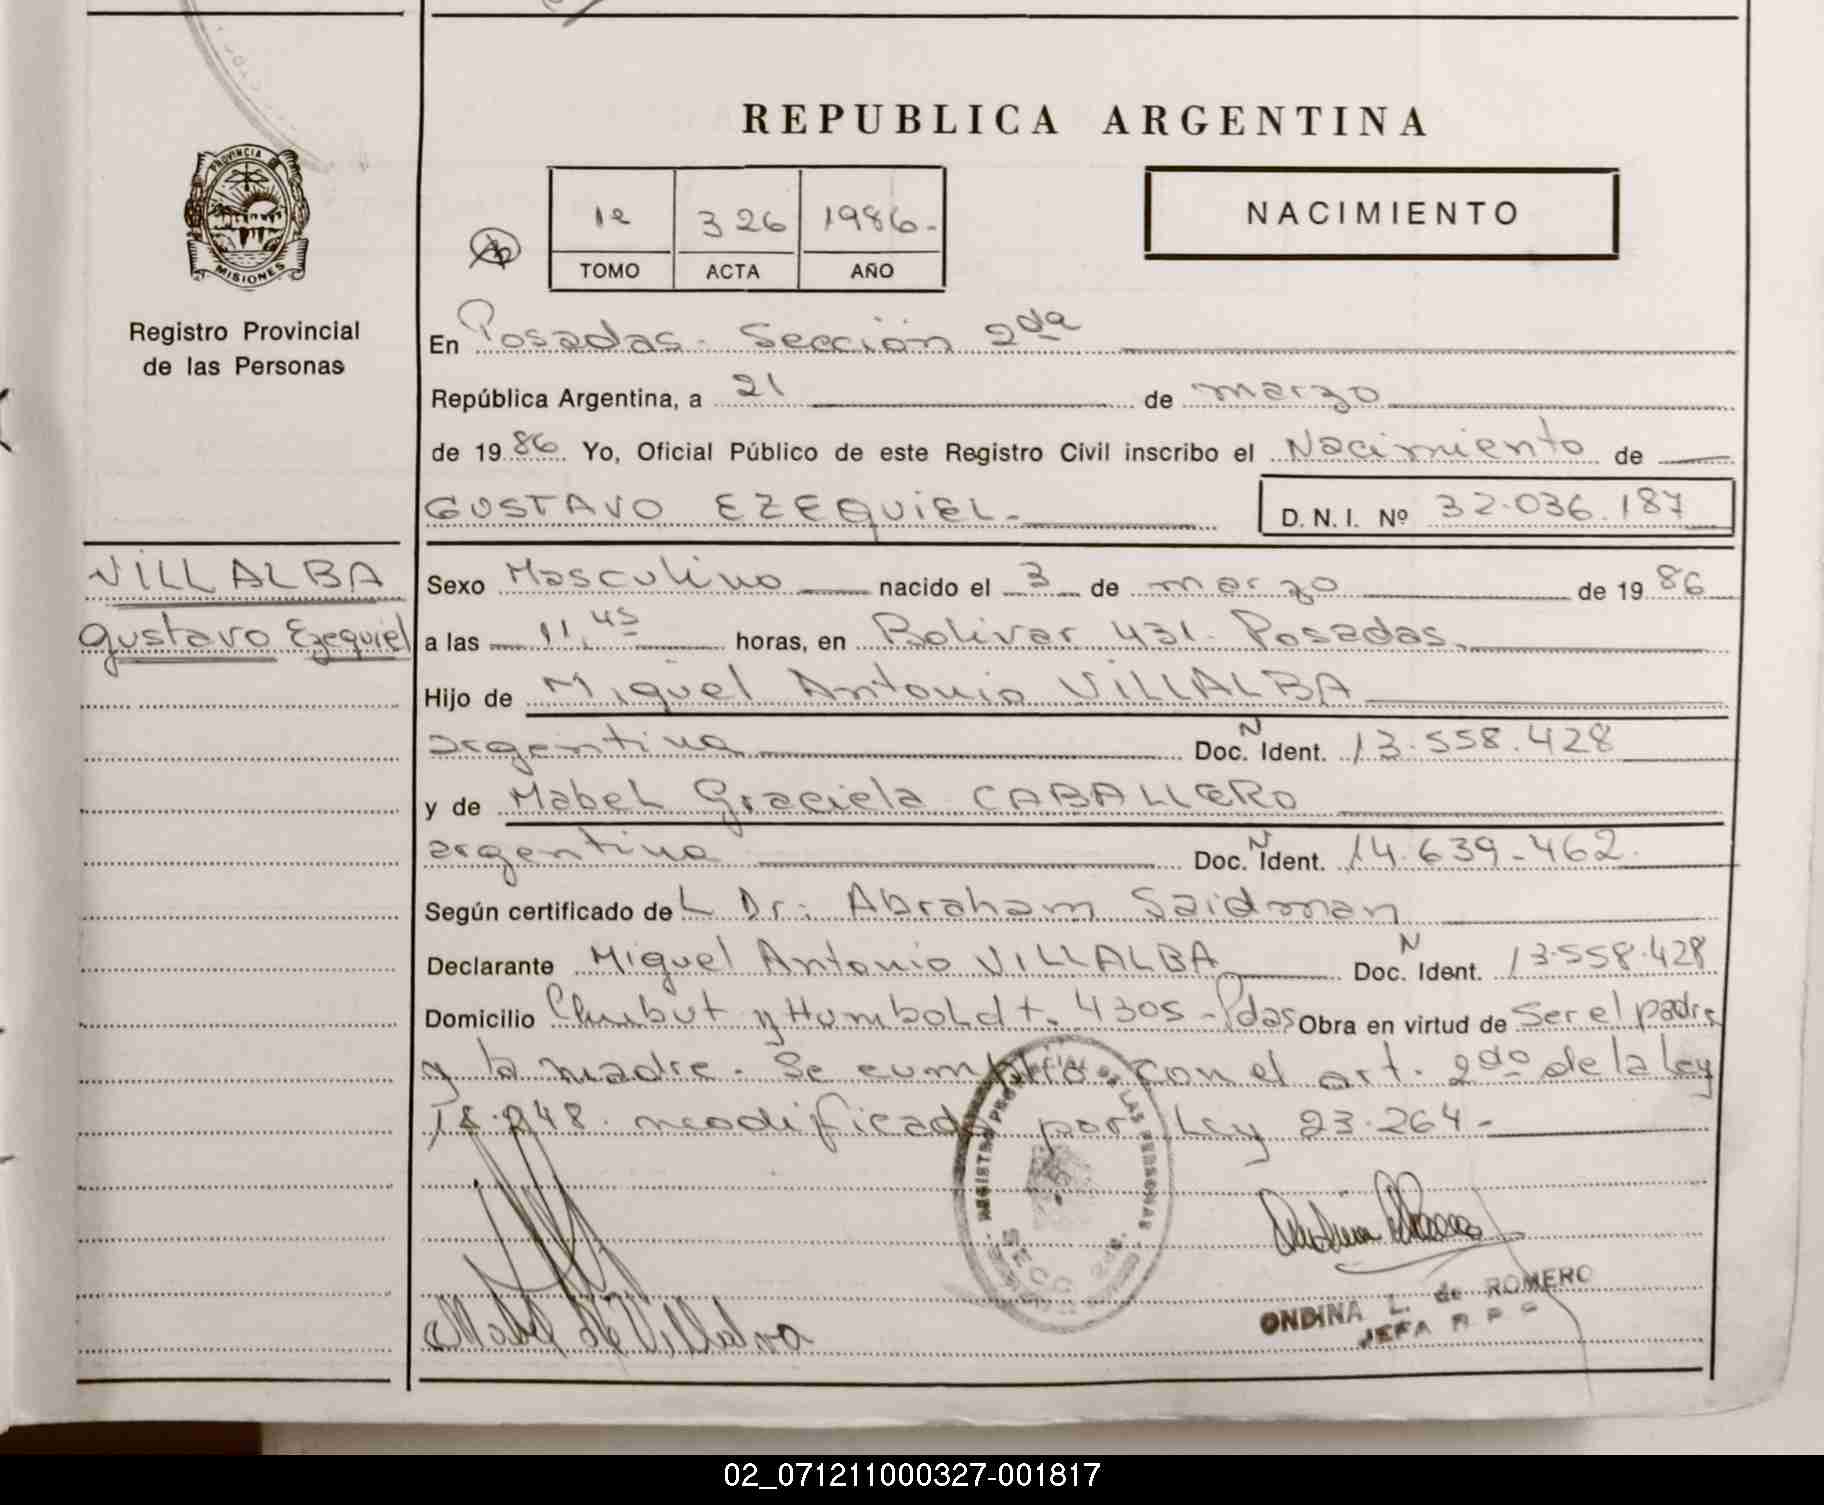 REPUBLICA ARGENTINA
PROVINCIA DE
MISIONES
Registro Provincial
de las Personas
1º 326 1986-
TOMO ACTA AÑO
NACIMIENTO
En Posadas. Sección 2da
República Argentina, a 21 de marzo
de 1986 Yo, Oficial Público de este Registro Civil inscribo el Nacimiento de
GUSTAVO EZEQUIEL- D.N.I. Nº 32.036.187
VILLALBA
Gustavo Ezequiel
Sexo Masculino nacido el 3 de marzo de 1986
a las 11,45 horas, en Bolivar 431. Posadas.
Hijo de Miguel Antonio VILLALBA
argentina Doc. N Ident. 13.558.428
y de Mabel Graciela CABALLERO
argentina Doc. N Ident. 14.639-462.
Según certificado del Dr. Abraham Saidman
Declarante Miguel Antonio VILLALBA Doc. N Ident. 13.558.428
Domicilio Chubut y Humboldt. 4305-Pdas Obra en virtud de Ser el padre
y la madre. Se cumplió con el art. 2do de la ley
18.248. modificado por Ley 23.264-
REGISTRO PROVINCIAL DE LAS PERSONAS
SECC. 2da.
Mabel de Villalva
ONDINA L. de ROMERO
JEFA R P P
02_071211000327-001817